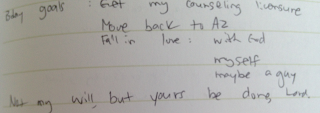 goals : Get my counseling licensure
Move back to Az
Fall in love : with God
myself
maybe a guy
Not my will, but yours be done, Lord.